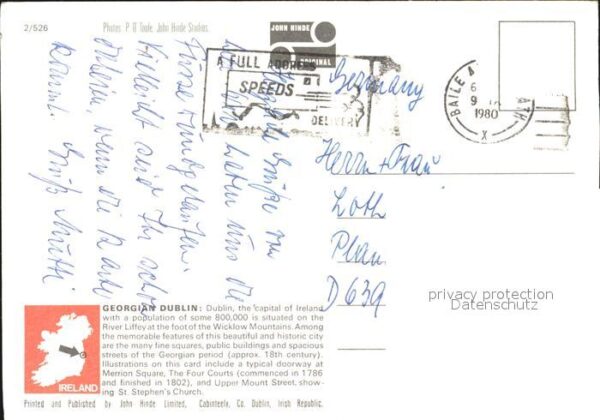 2/526
Photos: P. O'Toole, John Hinde Studios.
JOHN HINDE
ORIGINAL
A FULL ADDRESS
SPEEDS
DELIVERY
BAILE Á ATH
6
9
1980
X
Germany
Herrn + Frau
Loth
Plan
D 639
Grüße
uns die
Füße
Vielleicht seid Ihr schon
wenn die Karte
kommt. Gruß Mutti
privacy protection
Datenschutz
GEORGIAN DUBLIN: Dublin, the capital of Ireland
with a population of some 800,000 is situated on the
River Liffey at the foot of the Wicklow Mountains. Among
the memorable features of this beautiful and historic city
are the many fine squares, public buildings and spacious
streets of the Georgian period (approx. 18th century).
Illustrations on this card include a typical doorway at
Merrion Square, The Four Courts (commenced in 1786
and finished in 1802), and Upper Mount Street, show-
ing St. Stephen's Church.
IRELAND
Printed and Published by John Hinde Limited, Cabinteely, Co. Dublin, Irish Republic.